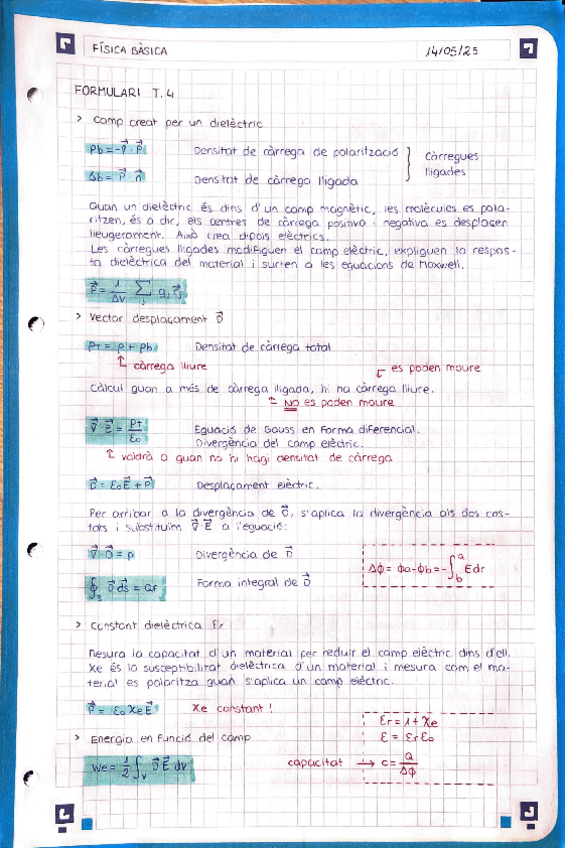 FÍSICA BÀSICA 14/05/25
FORMULARI T.4
> Camp creat per un dielèctric
ρb = -∇⃗ · P⃗ Densitat de càrrega de polarització
Càrregues
lligades
σb = P⃗ · n⃗ Densitat de càrrega lligada
Quan un dielèctric és dins d'un camp magnètic, les molècules es pola-
ritzen, és a dir, els centres de càrrega positiva i negativa es desplacen
lleugerament. Això crea dipols elèctrics.
Les càrregues lligades modifiquen el camp elèctric, expliquen la respos-
ta dielèctrica del material i surten a les equacions de Maxwell.
P⃗ = 1/ΔV Σj qj r⃗j
> Vector desplaçament D⃗
ρT = ρ + ρb Densitat de càrrega total
càrrega lliure
es poden moure
Càlcul quan a més de càrrega lligada, hi ha càrrega lliure.
NO es poden moure
∇⃗ · E⃗ = ρT/ε0 Equació de Gauss en forma diferencial.
Divergència del camp elèctric.
valdrà 0 quan no hi hagi densitat de càrrega
D⃗ = ε0E⃗ + P⃗ Desplaçament elèctric.
Per arribar a la divergència de D⃗, s'aplica la divergència als dos cos-
tats i substituïm ∇⃗ · E⃗ a l'equació:
∇⃗ · D⃗ = ρ Divergència de D⃗
Δϕ = ϕa - ϕb = - ∫_b^a E dr
∮s D⃗ ds⃗ = Qf Forma integral de D⃗
> Constant dielèctrica εr
Mesura la capacitat d'un material per reduir el camp elèctric dins d'ell.
Xe és la susceptibilitat dielèctrica d'un material i mesura com el ma-
terial es polaritza quan s'aplica un camp elèctric.
P⃗ = ε0 Xe E⃗ Xe constant!
εr = 1 + Xe
ε = εr ε0
> Energia en funció del camp
We = 1/2 ∫v D⃗ E⃗ dv
capacitat → C = Q/Δϕ